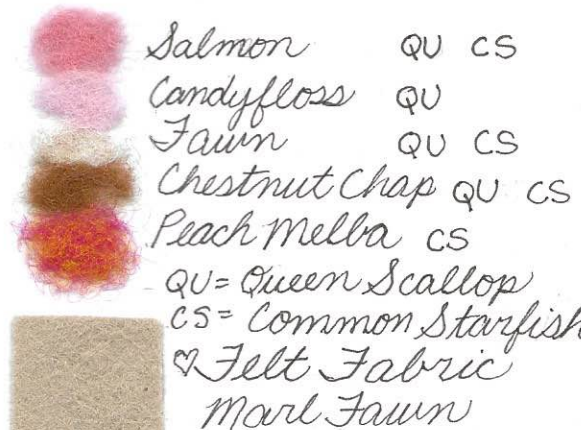 Salmon QU CS
Candyfloss QU
Fawn QU CS
Chestnut Chap QU CS
Peach Melba CS
QU = Queen Scallop
CS = Common Starfish
♡ Felt Fabric
Marl Fawn